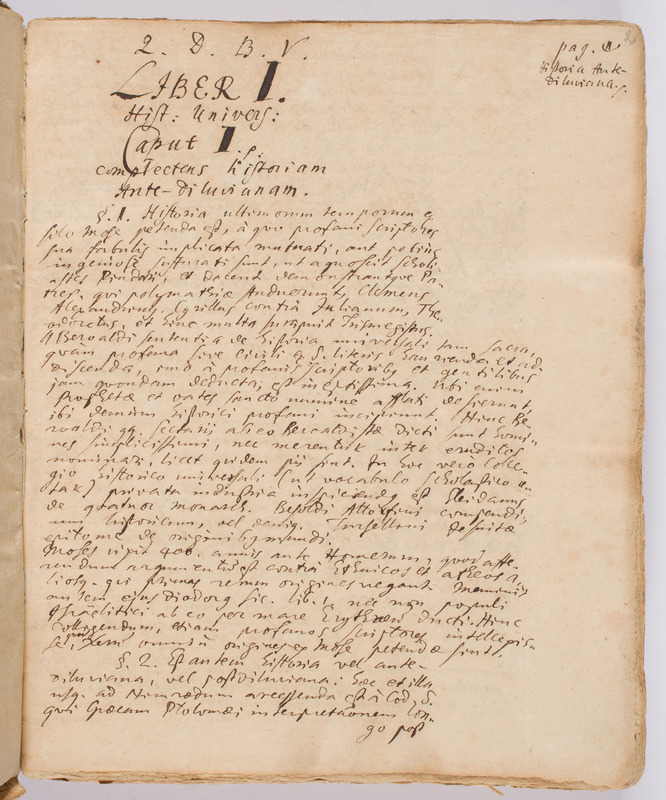 Q. D. B. V.
pag. 1
Historia Ante-
Diluviana.
LIBER I.
Hist: Univers:
Caput I.
complectens historiam
Ante-Diluvianam.
§. 1. Historia ultimorum temporum è
solo Mose petenda est, à quo profani scriptores
sua fabulis implicata mutuati, aut potius
ingeniose suffurati sunt, ut agnoscit Scholi-
astes Pindari, et docent demonstrantque Pa-
tres, qui polymathiae studuerunt, Clemens
Alexandrinus, Cyrillus contra Julianum, The-
odoretus, et hinc multa surripuit Trismegistus.
Beroaldi sententia de historia universali tam sacra,
quam profana sive civili è S. literis haurienda et ad-
discenda, imò à profanis scriptoribus et gentilibus
jam quondam deducta, est ineptissima. Ubi enim
Prophetae et vates sancto numine afflati desierunt,
ibi demum historici profani incipiunt. Hinc Be-
roaldi qq. sectarii ab eo Beroaldistae dicti sunt homi-
nes simplicissimi, nec merentur inter eruditos
nominari, licet quidem pii sint. In hoc vero Colle-
gio historico universali (ut vocabulo scholastico u-
tar) privata industria inspiciendus est Sleidanus
de quatuor monarch. Besoldi compendi-
um historicum, vel deniq. Turselloni Jesuitae
epitome de origine mundi.
Moses vixit 400. annis ante Homerum, quod affe-
rendum argumentum est contra Ethnicos et atheos a-
liosq. qui primas rerum origines negant. Meminit
autem ejus Diodorus Sic. lib. 1. nec non populi
Israëlitici ab eo per mare Erythraeum ducti. Hinc
colligendum, etiam profanos scriptores intellexis-
se, quod rerum omnium origines ex Mose petendae sint.
§. 2. Est autem historia vel ante-
diluviana, vel postdiluviana: haec et illa
usq. ad Nimrodum arcessenda est à Cod. S.
qui Graecam Ptolomaei interpretationem lon-
go post